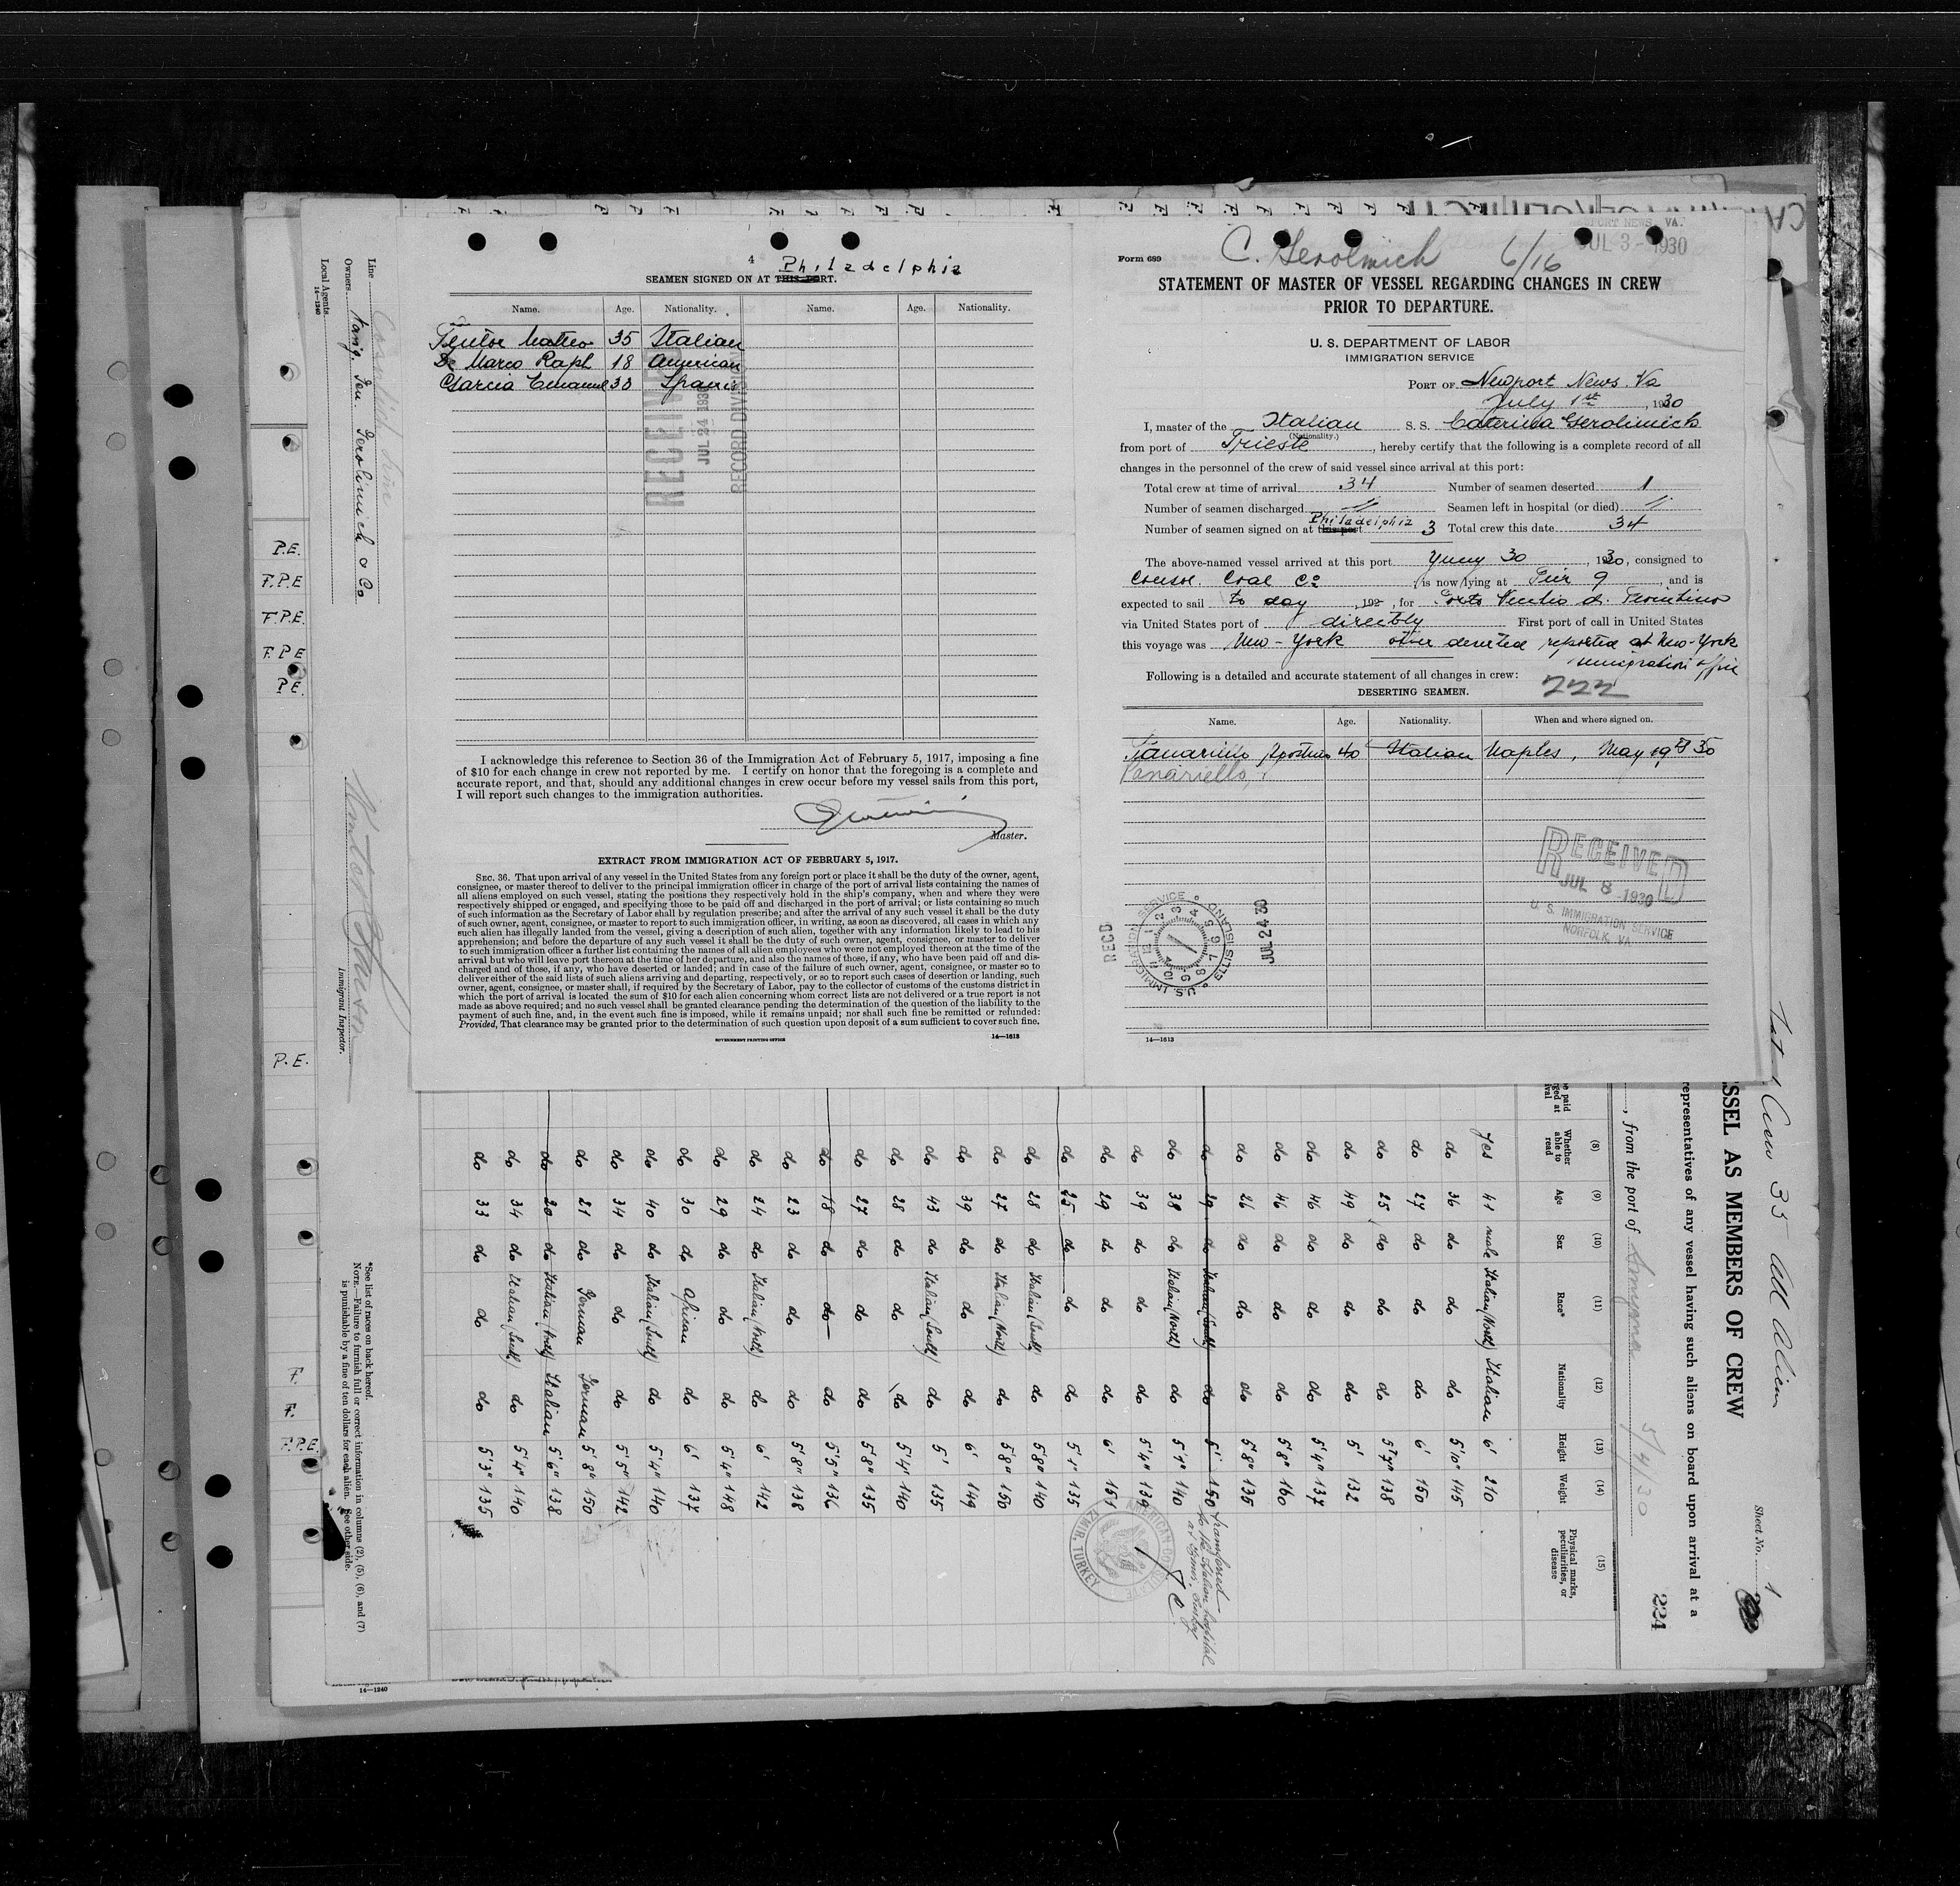 4 Philadelphia
SEAMEN SIGNED ON AT THIS PORT.
Name. Age. Nationality. Name. Age. Nationality.
Tentor Matteo 35 Italian
De Marco Raph 18 American
Garcia Emanuel 30 Spanis
RECEIVED
JUL 24 1930
RECORD DIVISION
I acknowledge this reference to Section 36 of the Immigration Act of February 5, 1917, imposing a fine
of $10 for each change in crew not reported by me. I certify on honor that the foregoing is a complete and
accurate report, and that, should any additional changes in crew occur before my vessel sails from this port,
I will report such changes to the immigration authorities.
Master.
EXTRACT FROM IMMIGRATION ACT OF FEBRUARY 5, 1917.
SEC. 36. That upon arrival of any vessel in the United States from any foreign port or place it shall be the duty of the owner, agent,
consignee, or master thereof to deliver to the principal immigration officer in charge of the port of arrival lists containing the names of
all aliens employed on such vessel, stating the positions they respectively hold in the ship's company, when and where they were
respectively shipped or engaged, and specifying those to be paid off and discharged in the port of arrival; or lists containing so much
of such information as the Secretary of Labor shall by regulation prescribe; and after the arrival of any such vessel it shall be the duty
of such owner, agent, consignee, or master to report to such immigration officer, in writing, as soon as discovered, all cases in which any
such alien has illegally landed from the vessel, giving a description of such alien, together with any information likely to lead to his
apprehension; and before the departure of any such vessel it shall be the duty of such owner, agent, consignee, or master to deliver
to such immigration officer a further list containing the names of all alien employees who were not employed thereon at the time of the
arrival but who will leave port thereon at the time of her departure, and also the names of those, if any, who have been paid off and dis-
charged and of those, if any, who have deserted or landed; and in case of the failure of such owner, agent, consignee, or master so to
deliver either of the said lists of such aliens arriving and departing, respectively, or so to report such cases of desertion or landing, such
owner, agent, consignee, or master shall, if required by the Secretary of Labor, pay to the collector of customs of the customs district in
which the port of arrival is located the sum of $10 for each alien concerning whom correct lists are not delivered or a true report is not
made as above required; and no such vessel shall be granted clearance pending the determination of the question of the liability to the
payment of such fine, and, in the event such fine is imposed, while it remains unpaid; nor shall such fine be remitted or refunded:
Provided, That clearance may be granted prior to the determination of such question upon deposit of a sum sufficient to cover such fine.
GOVERNMENT PRINTING OFFICE 14—1613
Form 689
C. Gerolimich 6/16
NEWPORT NEWS, VA.
JUL 3 - 1930
STATEMENT OF MASTER OF VESSEL REGARDING CHANGES IN CREW
PRIOR TO DEPARTURE.
U. S. DEPARTMENT OF LABOR
IMMIGRATION SERVICE
PORT OF Newport News. Va
July 1st, 1930
I, master of the Italian S. S. Caterina Gerolimich
(Nationality.)
from port of Trieste, hereby certify that the following is a complete record of all
changes in the personnel of the crew of said vessel since arrival at this port:
Total crew at time of arrival 34 Number of seamen deserted 1
Number of seamen discharged // Seamen left in hospital (or died) //
Number of seamen signed on at this port Philadelphia 3 Total crew this date 34
The above-named vessel arrived at this port Yuny 30, 1930, consigned to
Consol. Coal Co (is now) lying at Pier 9, and is
expected to sail to day, 192 , for Porto
via United States port of directly First port of call in United States
this voyage was New-York deserted reported at New-York
immigration office
Following is a detailed and accurate statement of all changes in crew: 222
DESERTING SEAMEN.
Name. Age. Nationality. When and where signed on.
Panariello 40 Italian Naples, May 19th 30
Panariello,
RECEIVED
JUL 8 1930
U. S. IMMIGRATION SERVICE
NORFOLK, VA.
RECD
U.S. IMMIGRATION SERVICE ELLIS ISLAND
JUL 24 30
14—1613
Line Cosulich Line
Owners Navig. Gen. Gerolimich & Co
Local Agents
14—1240
Immigrant Inspector.
P.E.
F.P.E
F.P.E.
F.P.E
P.E.
P.E.
F.
F.
F.P.E.
*See list of races on back hereof.
NOTE.—Failure to furnish full or correct information in columns (2), (5), (6), and (7)
is punishable by a fine of ten dollars for each alien. See other side.
14—1240
Crew 35 all Alien
Sheet No. 1
SSEL AS MEMBERS OF CREW
representatives of any vessel having such aliens on board upon arrival at a
224
, from the port of Smyrna 5/4/30
(8) Whether able to read (9) Age (10) Sex (11) Race* (12) Nationality (13) Height (14) Weight (15) Physical marks, peculiarities, or disease
Yes 41 male Italian (North) Italian 6' 210
do 36 do do do 5'10" 145
do 27 do do do 6' 150
do 25 do do do 5'7" 138
do 49 do do do 5' 132
do 46 do do do 5'4" 137
do 46 do do do 5'8" 160
do 26 do do do 5'8" 135
do 29 do Italian (South) do 5'1" 150 transferred to the Italian hospital at Smirne, Turkey
do 38 do Italian (North) do 5'7" 140
do 39 do do do 5'4" 139
do 29 do do do 6' 151
do 25 do do do 5'1" 135
do 28 do Italian (South) do 5'8" 140
do 27 do Italian (North) do 5'8" 150
do 39 do do do 6' 149
do 43 do Italian (South) do 5' 135
do 28 do do do 5'4" 140
do 27 do do do 5'8" 135
do 18 do do do 5'5" 136
do 23 do do do 5'8" 138
do 24 do Italian (North) do 6' 142
do 29 do do do 5'4" 148
do 30 do African do 6' 137
do 40 do Italian (South) do 5'4" 140
do 34 do do do 5'5" 142
do 21 do German German 5'8" 150
do 20 do Italian (North) Italian 5'6" 138
do 34 do Italian (South) do 5'4" 140
do 33 do do do 5'3" 135
AMERICAN CONSULATE
IZMIR, TURKEY